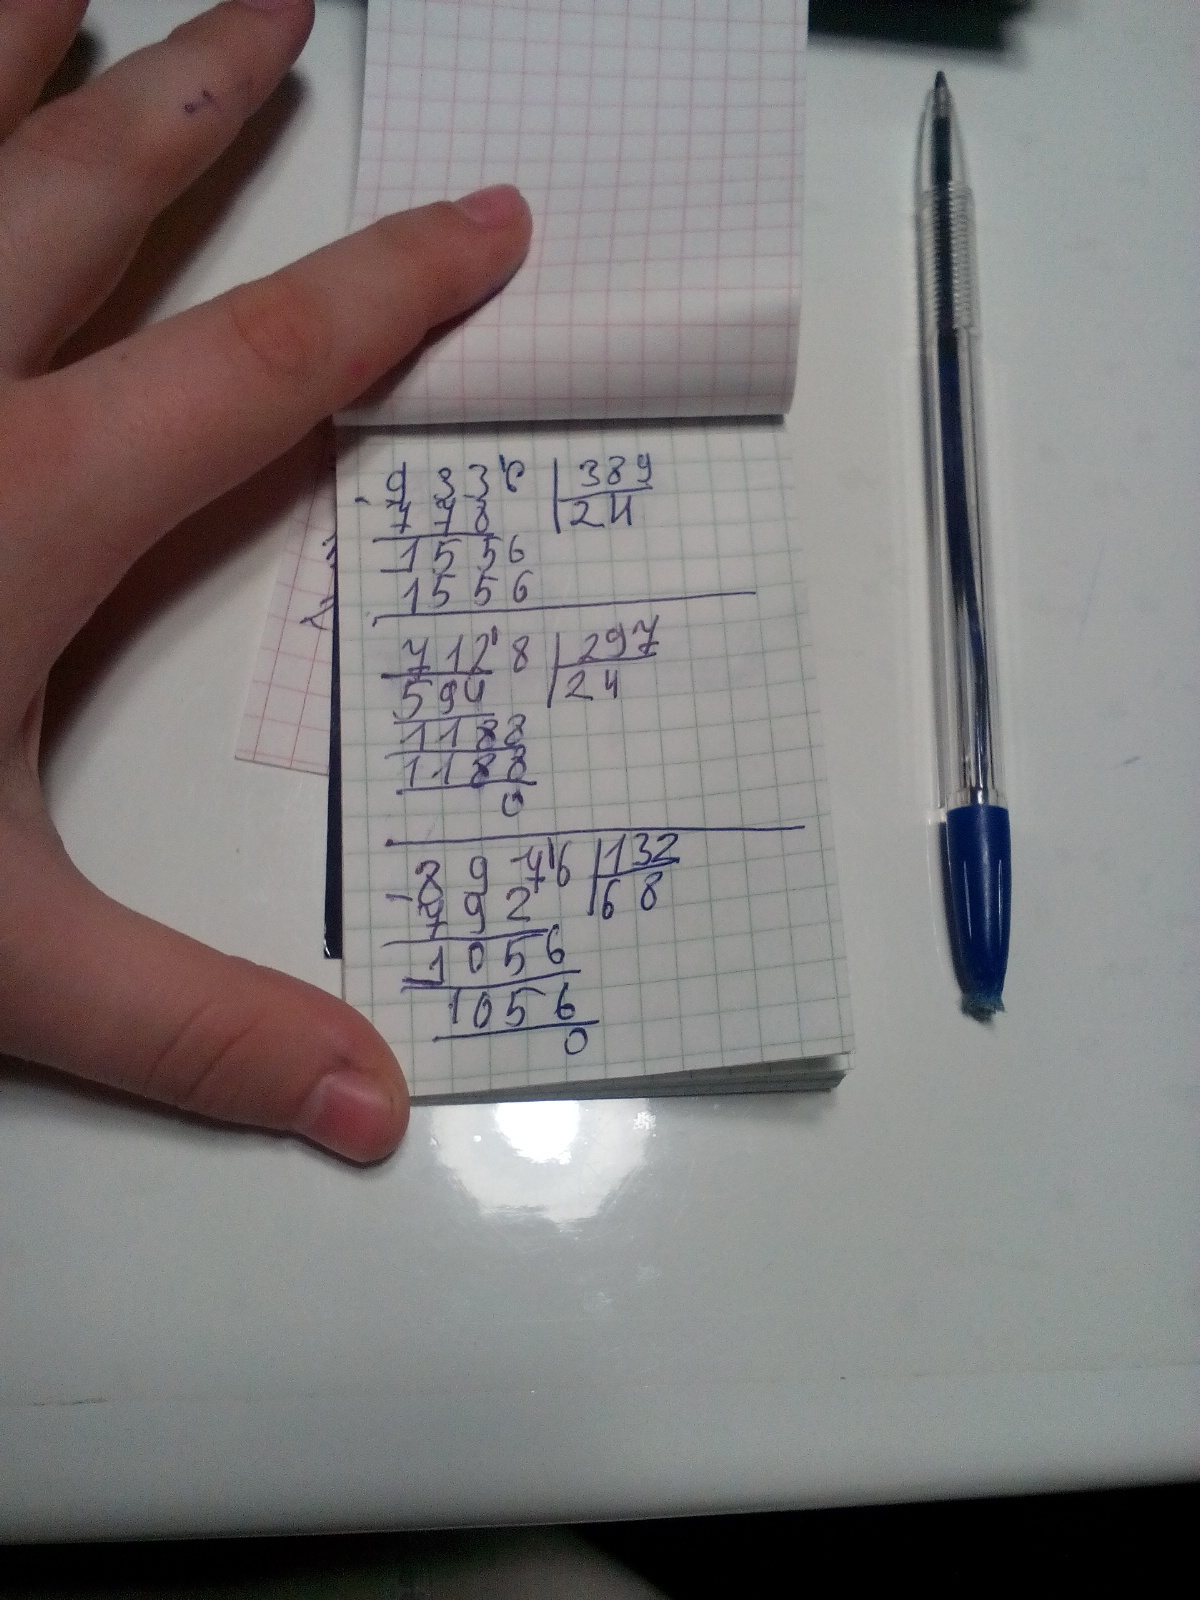 9336 | 389
778 | 24
1556
1556
7128 | 297
594 | 24
1188
1188
0
8976 | 132
792 | 68
1056
1056
0